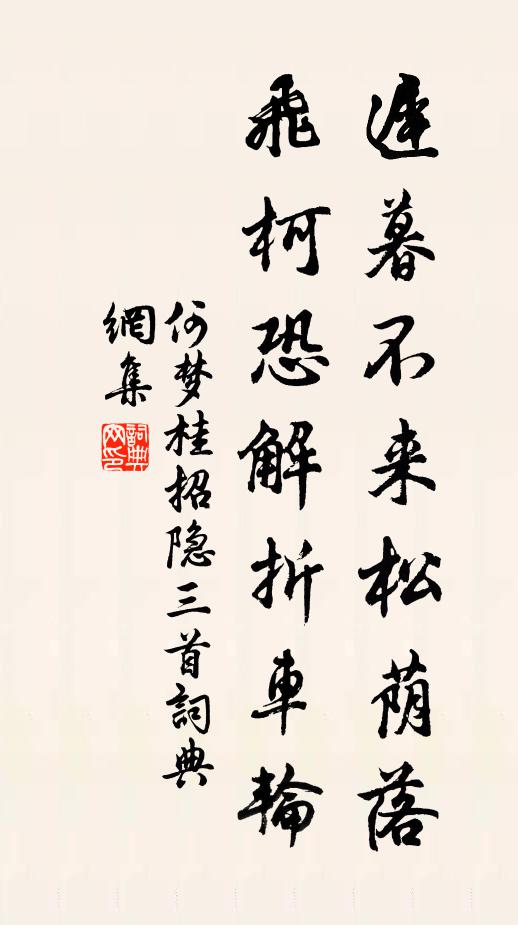 遲暮不来松荫落
飛柯恐解折車輪
何梦桂招隐三首詞典
網集
詞典网印